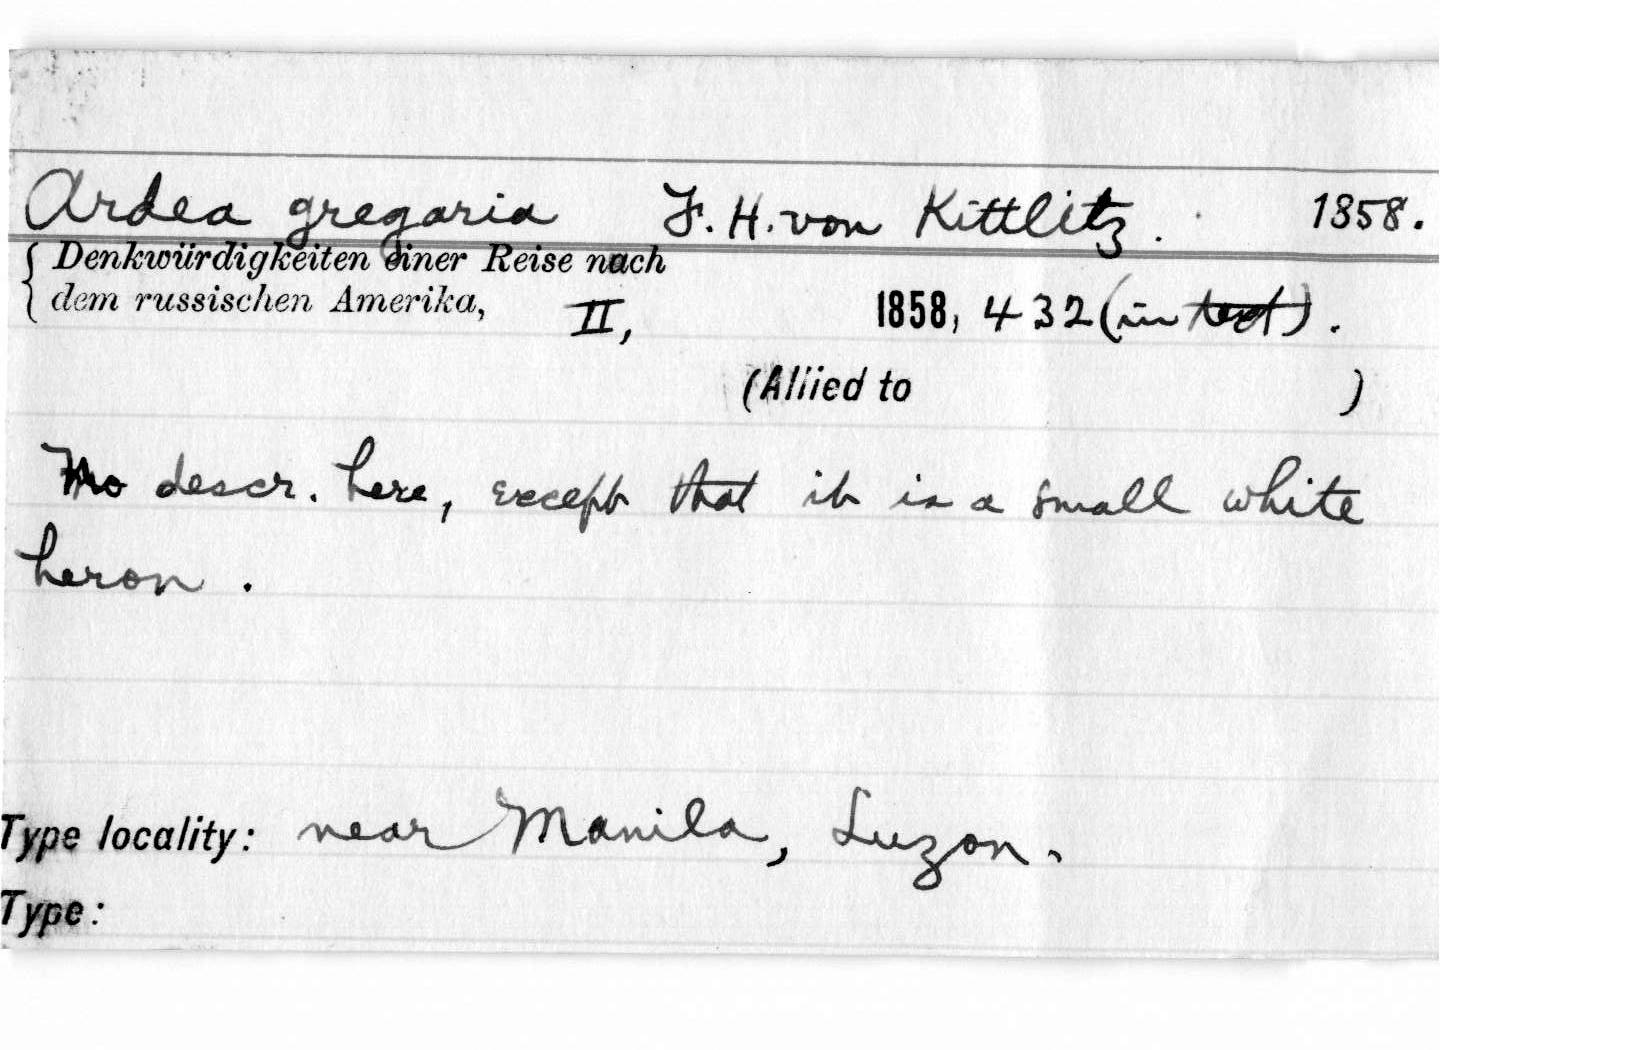 Ardea gregaria F. H. von Kittlitz. 1858.
Denkwürdigkeiten einer Reise nach
dem russischen Amerika, II, 1858, 432 (in text).
(Allied to )
No descr. here, except that it is a small white
heron.
Type locality: near Manila, Luzon.
Type: